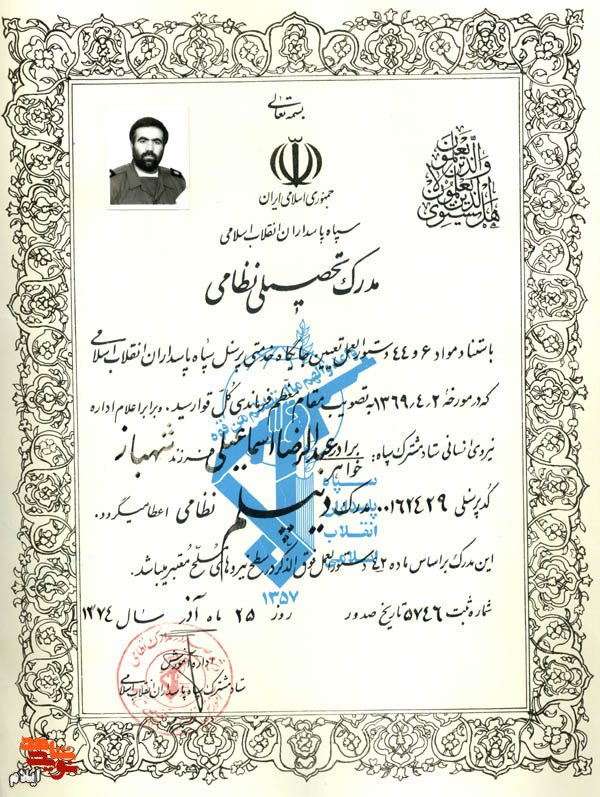 بسمه تعالی
جمهوری اسلامی ایران
هل یستوی الذین یعلمون والذین لا یعلمون
سپاه پاسداران انقلاب اسلامی
مدرک تحصیلی نظامی
با استناد مواد ۶ و ۴۴ دستورالعمل تعیین جایگاه خدمتی پرسنل سپاه پاسداران انقلاب اسلامی
که در مورخهٔ ۱۳۶۹٫۴٫۲ به تصویب مقام معظم فرماندهی کل قوا رسید، و برابر اعلام اداره
نیروی انسانی ستاد مشترک سپاه: برادر خواهر: عبدالرضا اسماعیلی فرزند شهباز
کد پرسنلی ۰۰۱۶۲۴۲۹ مدرک دیپلم نظامی اعطا میگردد.
این مدرک براساس ماده ۴۲ دستورالعمل فوق الذکر در سطح نیروهای مسلح معتبر میباشد.
شماره ثبت ۵۷۴۶ تاریخ صدور روز ۲۵ ماه آذر سال ۱۳۷۴
واعدوا لهم ما استطعتم من قوة
سپاه
پاسداران
انقلاب
اسلامی
۱۳۵۷
اداره آموزش
ستاد مشترک سپاه پاسداران انقلاب اسلامی
ایلام